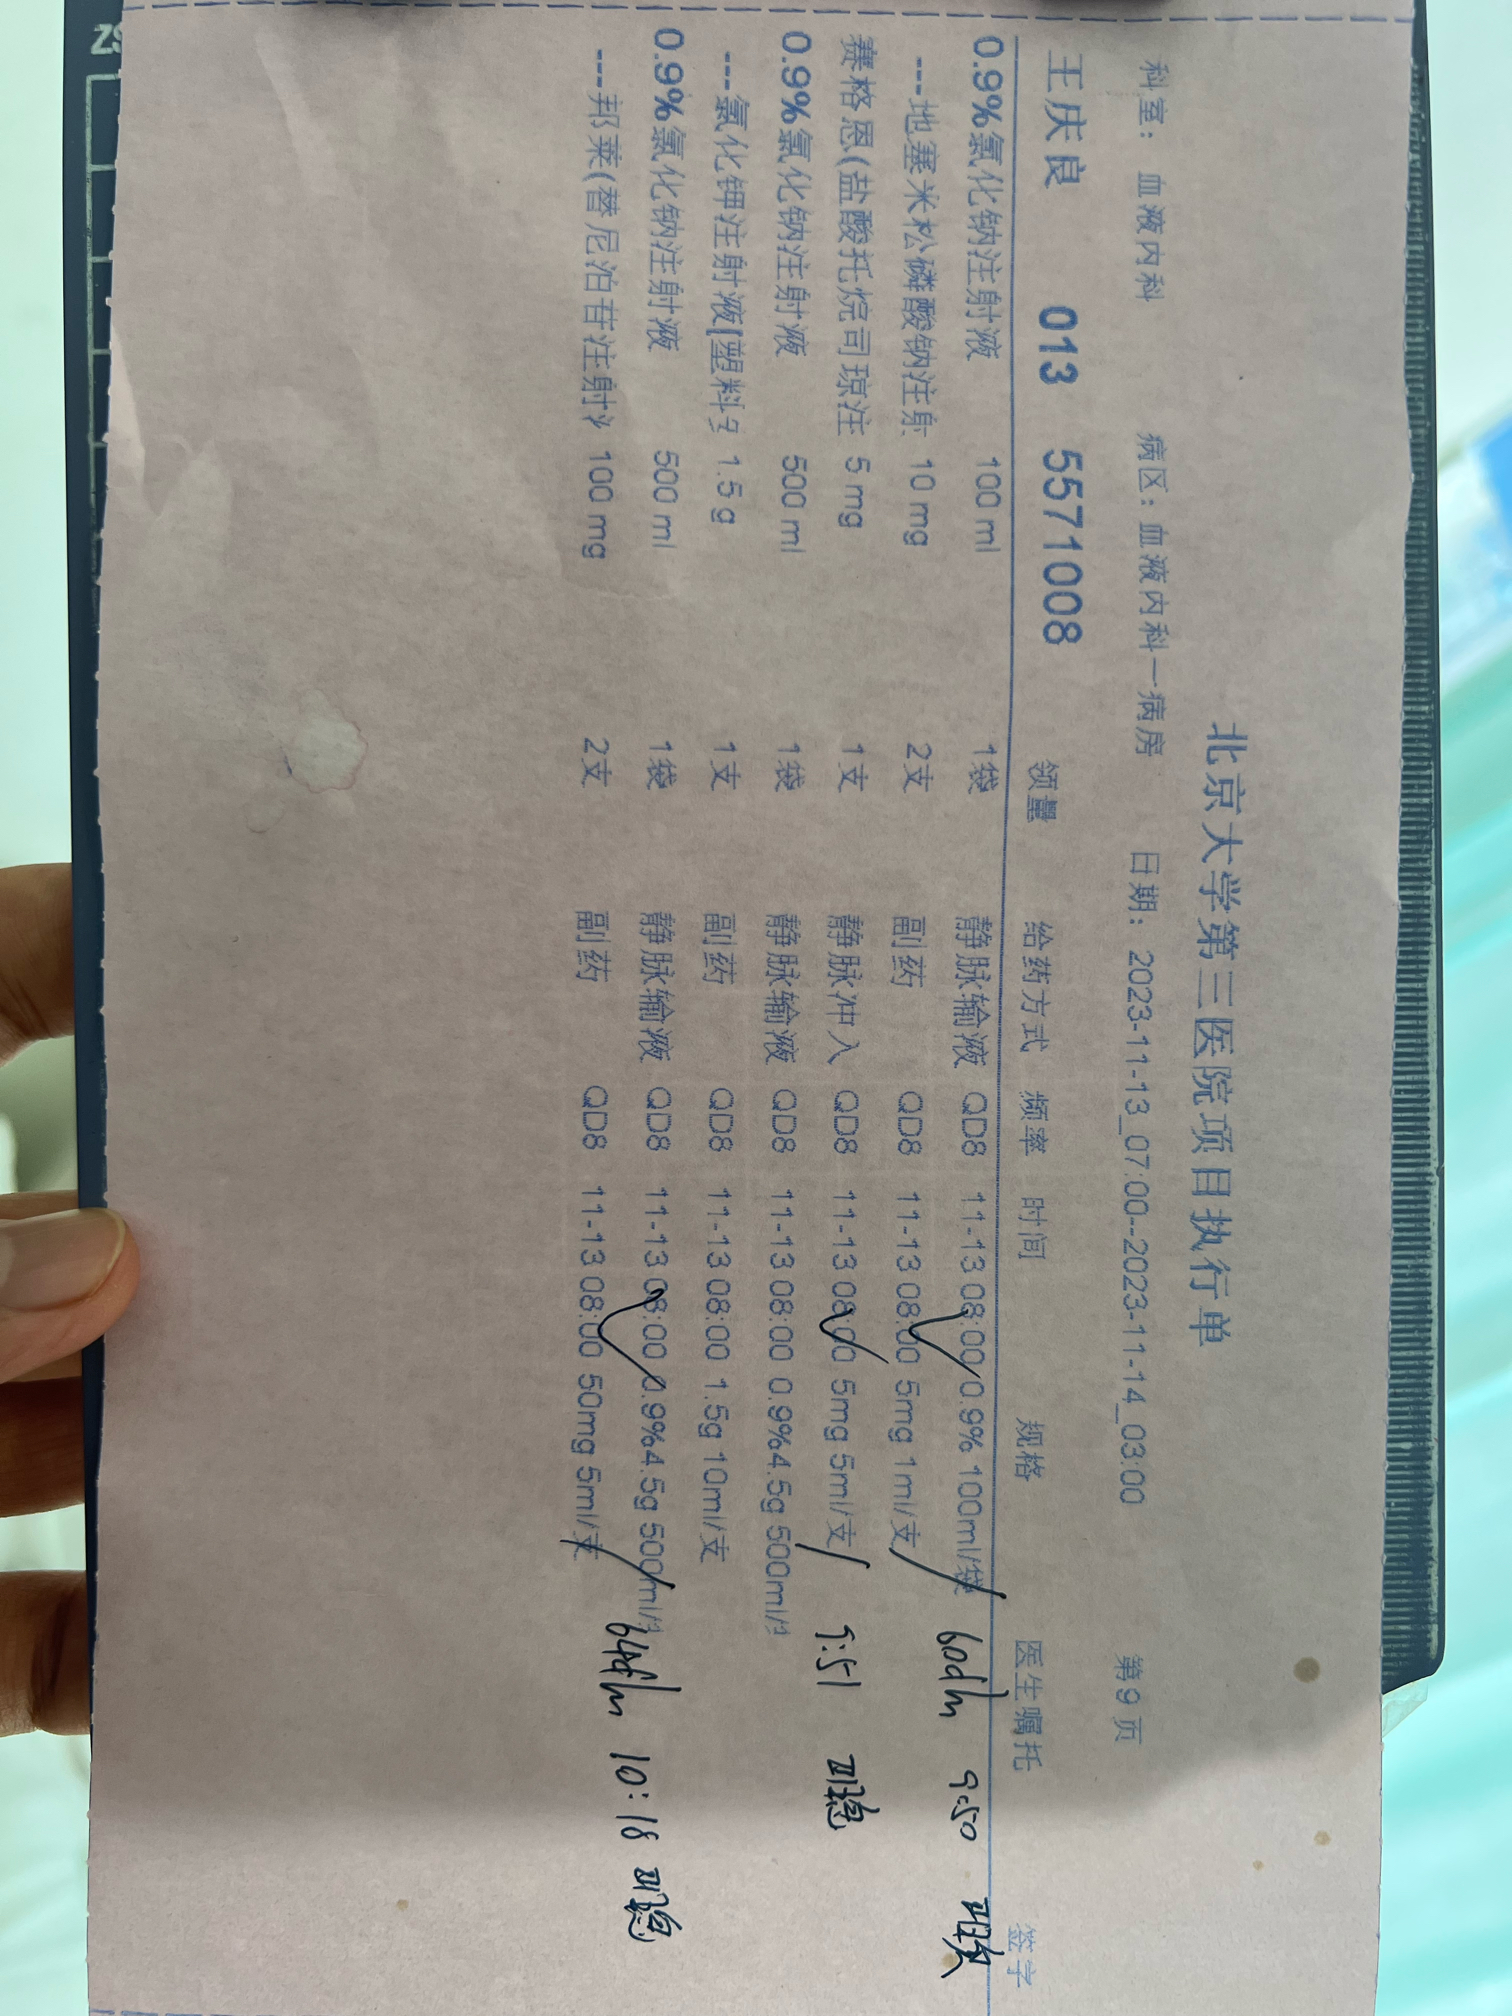 北京大学第三医院项目执行单
科室: 血液内科 病区: 血液内科一病房 日期: 2023-11-13_07:00--2023-11-14_03:00 第9页
王庆良 013 5571008 领量 给药方式 频率 时间 规格 医生嘱托 签字
0.9%氯化钠注射液 100 ml 1袋 静脉输液 QD8 11-13 08:00 0.9% 100ml/袋 60d/m 9:50
---地塞米松磷酸钠注射 10 mg 2支 副药 QD8 11-13 08:00 5mg 1ml/支
赛格恩(盐酸托烷司琼注 5 mg 1支 静脉冲入 QD8 11-13 08:00 5mg 5ml/支 9:51
0.9%氯化钠注射液 500 ml 1袋 静脉输液 QD8 11-13 08:00 0.9%4.5g 500ml/
---氯化钾注射液[塑料 1.5 g 1支 副药 QD8 11-13 08:00 1.5g 10ml/支
0.9%氯化钠注射液 500 ml 1袋 静脉输液 QD8 11-13 08:00 0.9%4.5g 500ml/ 64d/m 10:18
---邦莱(替尼泊苷注射 100 mg 2支 副药 QD8 11-13 08:00 50mg 5ml/支